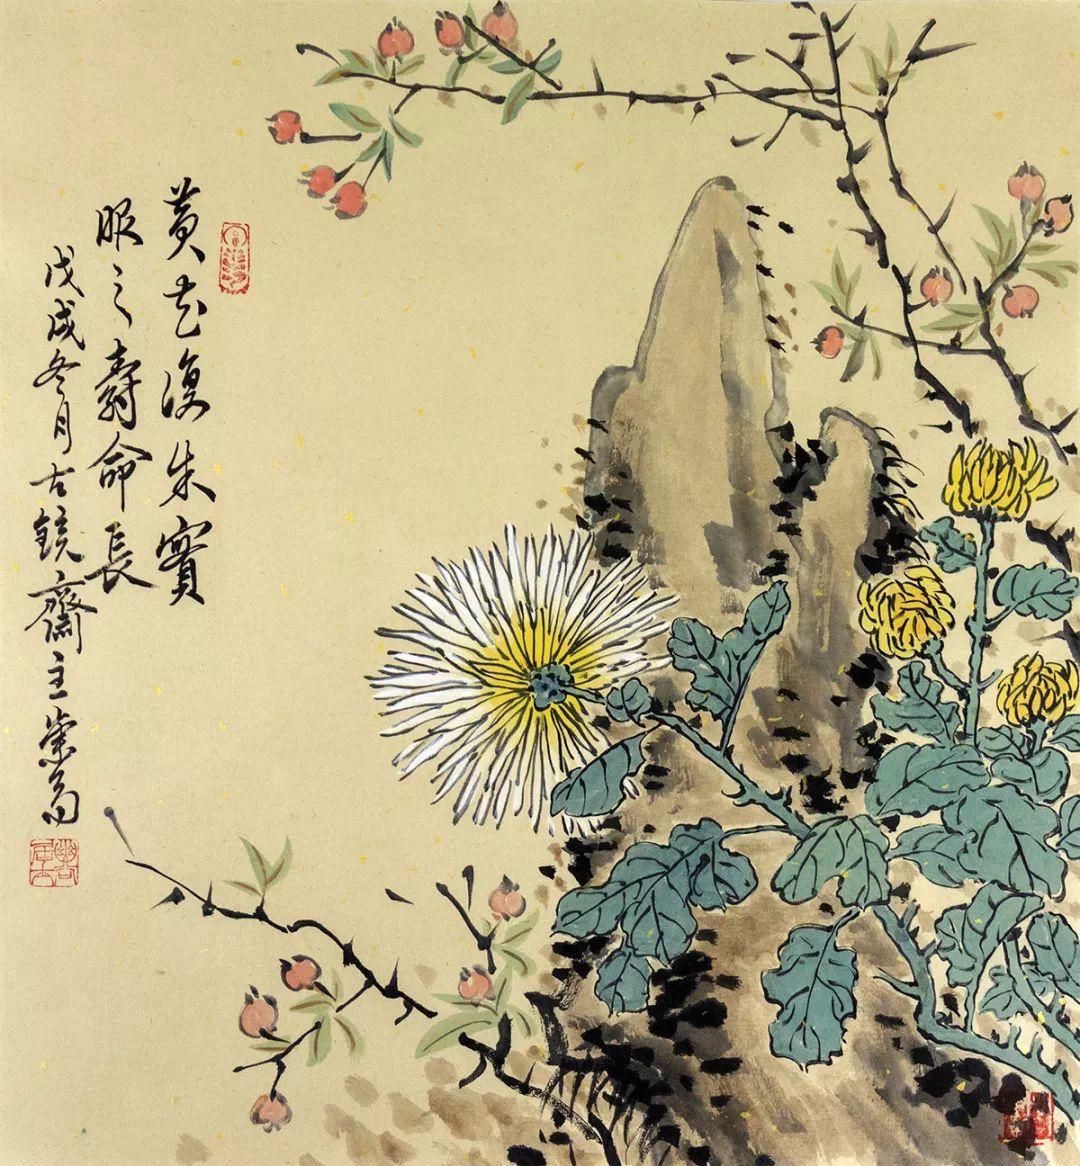 黄花復朱實
服之壽命長
戊戌冬月古鏡齋主